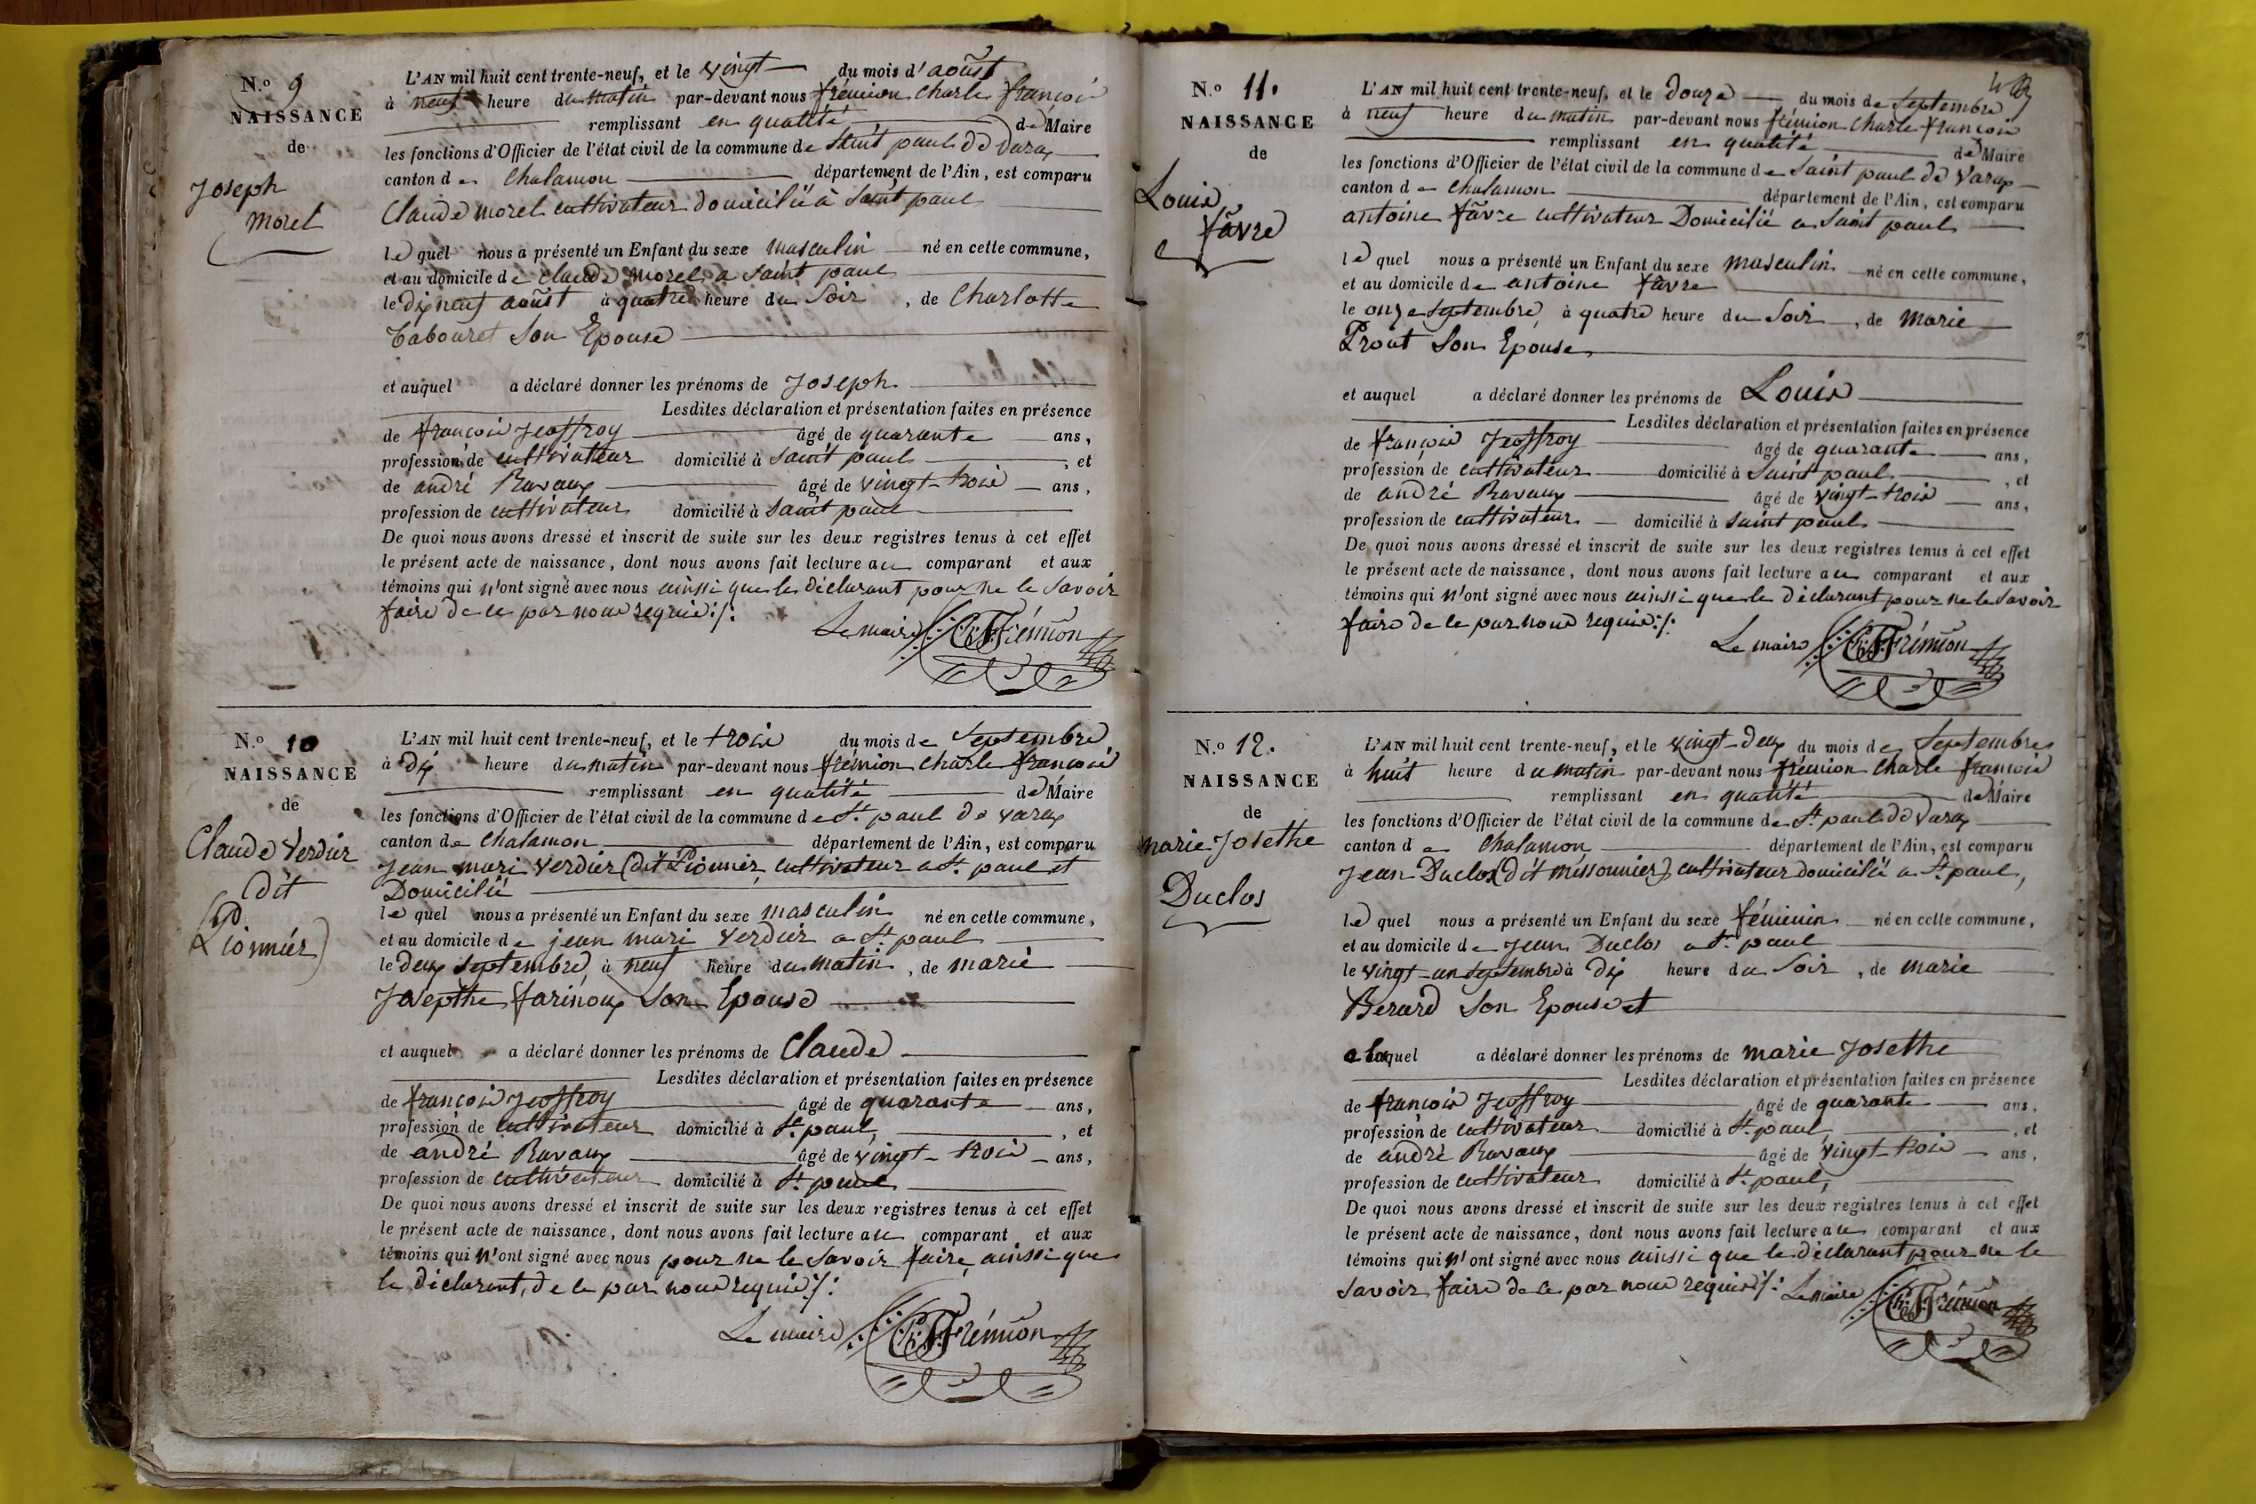 N.o 9
NAISSANCE
de
Joseph
morel
L'AN mil huit cent trente-neuf, et le vingt du mois d'aoûst
à neuf heure du matin par-devant nous frémion Charle françois
remplissant en qualité de Maire
les fonctions d'Officier de l'état civil de la commune de Saint paul de Varax
canton de Chalamon département de l'Ain, est comparu
Claude morel cultivateur domicilié à Saint paul
le quel nous a présenté un Enfant du sexe masculin né en cette commune,
et au domicile de claude morel a Saint paul
le dix neuf aoûst à quatre heure du Soir, de Charlotte
Tabouret Son Epouse
et auquel a déclaré donner les prénoms de Joseph
Lesdites déclaration et présentation faites en présence
de françois Jeoffroy âgé de quarante ans,
profession de cultivateur domicilié à Saint paul, et
de andré Ravaux âgé de vingt-trois ans,
profession de cultivateur domicilié à Saint paul
De quoi nous avons dressé et inscrit de suite sur les deux registres tenus à cet effet
le présent acte de naissance, dont nous avons fait lecture au comparant et aux
témoins qui n'ont signé avec nous ainssi que le déclarant pour ne le Savoir
faire de ce par nous requis ./.
Le maire Ch. F. Frémion
N.o 10
NAISSANCE
de
Claude Verdier
dit
(Pionnier)
L'AN mil huit cent trente-neuf, et le trois du mois de Septembre
à dix heure du matin par-devant nous frémion Charle françois
remplissant en qualité de Maire
les fonctions d'Officier de l'état civil de la commune de St. paul de varax
canton de Chalamon département de l'Ain, est comparu
Jean mari Verdier (dit Pionnier, cultivateur a St. paul et
Domicilié
le quel nous a présenté un Enfant du sexe masculin né en cette commune,
et au domicile de jean mari Verdier a St. paul
le deux septembre, à neuf heure du matin, de marie
Josepthe farinoux Son Epouse
et auquel a déclaré donner les prénoms de Claude
Lesdites déclaration et présentation faites en présence
de françois Jeoffroy âgé de quarante ans,
profession de cultivateur domicilié à St. paul, et
de andré Ravaux âgé de vingt-trois ans,
profession de cultivateur domicilié à St. paul
De quoi nous avons dressé et inscrit de suite sur les deux registres tenus à cet effet
le présent acte de naissance, dont nous avons fait lecture au comparant et aux
témoins qui n'ont signé avec nous pour ne le Savoir faire ainssi que
le déclarant, de ce par nous requis ./.
Le maire Ch. F. Frémion
N.o 11.
NAISSANCE
de
Louis
fâvre
L'AN mil huit cent trente-neuf, et le douze du mois de Septembre
à neuf heure du matin par-devant nous frémion Charle françois
remplissant en qualité de Maire
les fonctions d'Officier de l'état civil de la commune de Saint paul de Varax
canton de Chalamon département de l'Ain, est comparu
antoine fâvre cultivateur Domicilié a Saint paul
le quel nous a présenté un Enfant du sexe masculin né en cette commune,
et au domicile de antoine fâvre
le onze Septembre, à quatre heure du Soir, de marie
Prout Son Epouse,
et auquel a déclaré donner les prénoms de Louis
Lesdites déclaration et présentation faites en présence
de françois Jeoffroy âgé de quarante ans,
profession de cultivateur domicilié à Saint paul, et
de andré Ravaux âgé de vingt-trois ans,
profession de cultivateur domicilié à Saint paul
De quoi nous avons dressé et inscrit de suite sur les deux registres tenus à cet effet
le présent acte de naissance, dont nous avons fait lecture au comparant et aux
témoins qui n'ont signé avec nous ainssi que le déclarant pour ne le Savoir
faire de ce par nous requis ./.
Le maire Ch. F. Frémion
N.o 12.
NAISSANCE
de
marie Josethe
Duclos
L'AN mil huit cent trente-neuf, et le vingt-deux du mois de Septembre
à huit heure du matin par-devant nous frémion Charle françois
remplissant en qualité de Maire
les fonctions d'Officier de l'état civil de la commune de St. paul de Varax
canton de Chalamon département de l'Ain, est comparu
Jean Duclos (dit missonnier) cultivateur domicilié a St. paul,
le quel nous a présenté un Enfant du sexe féminin né en cette commune,
et au domicile de Jean Duclos a St. paul
le vingt-un septembre à dix heure du Soir, de marie
Berard Son Epouse et
a laquel a déclaré donner les prénoms de marie Josethe
Lesdites déclaration et présentation faites en présence
de françois Jeoffroy âgé de quarante ans,
profession de cultivateur domicilié à St. paul, et
de andré Ravaux âgé de vingt-trois ans,
profession de cultivateur domicilié à St. paul,
De quoi nous avons dressé et inscrit de suite sur les deux registres tenus à cet effet
le présent acte de naissance, dont nous avons fait lecture au comparant et aux
témoins qui n'ont signé avec nous ainssi que le déclarant pour ne le
Savoir faire de ce par nous requis ./. Le maire Ch. F. Frémion